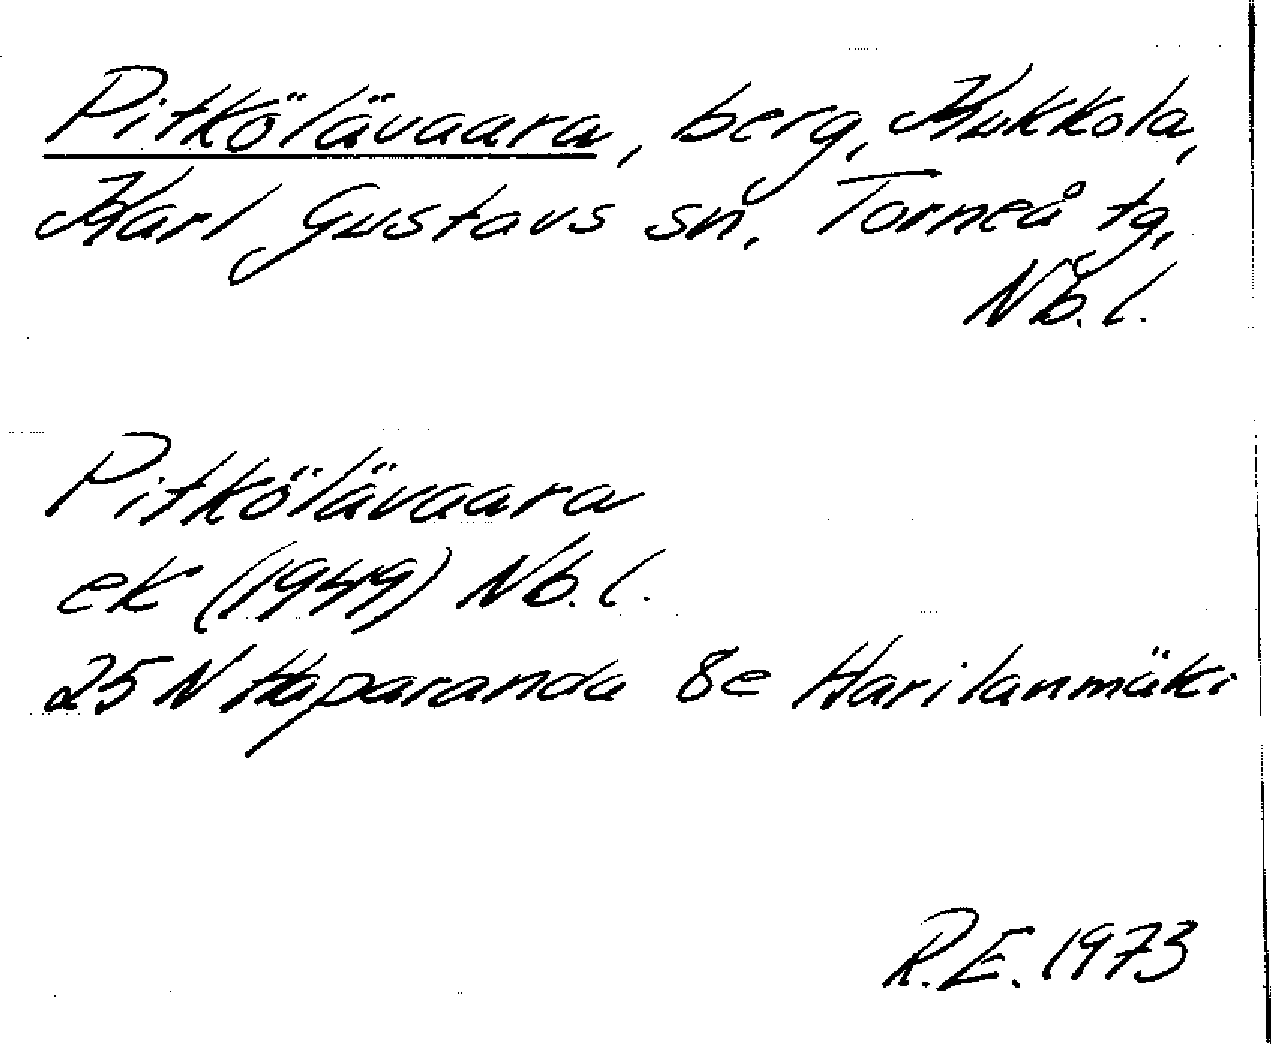 Pitkölävaara, berg, Kukkola,
Karl Gustavs sn, Torneå tg,
Nb. l.
Pitkölävaara
ek (1949) Nb. l.
25 N Haparanda 8e Harilanmäki
R.E. 1973